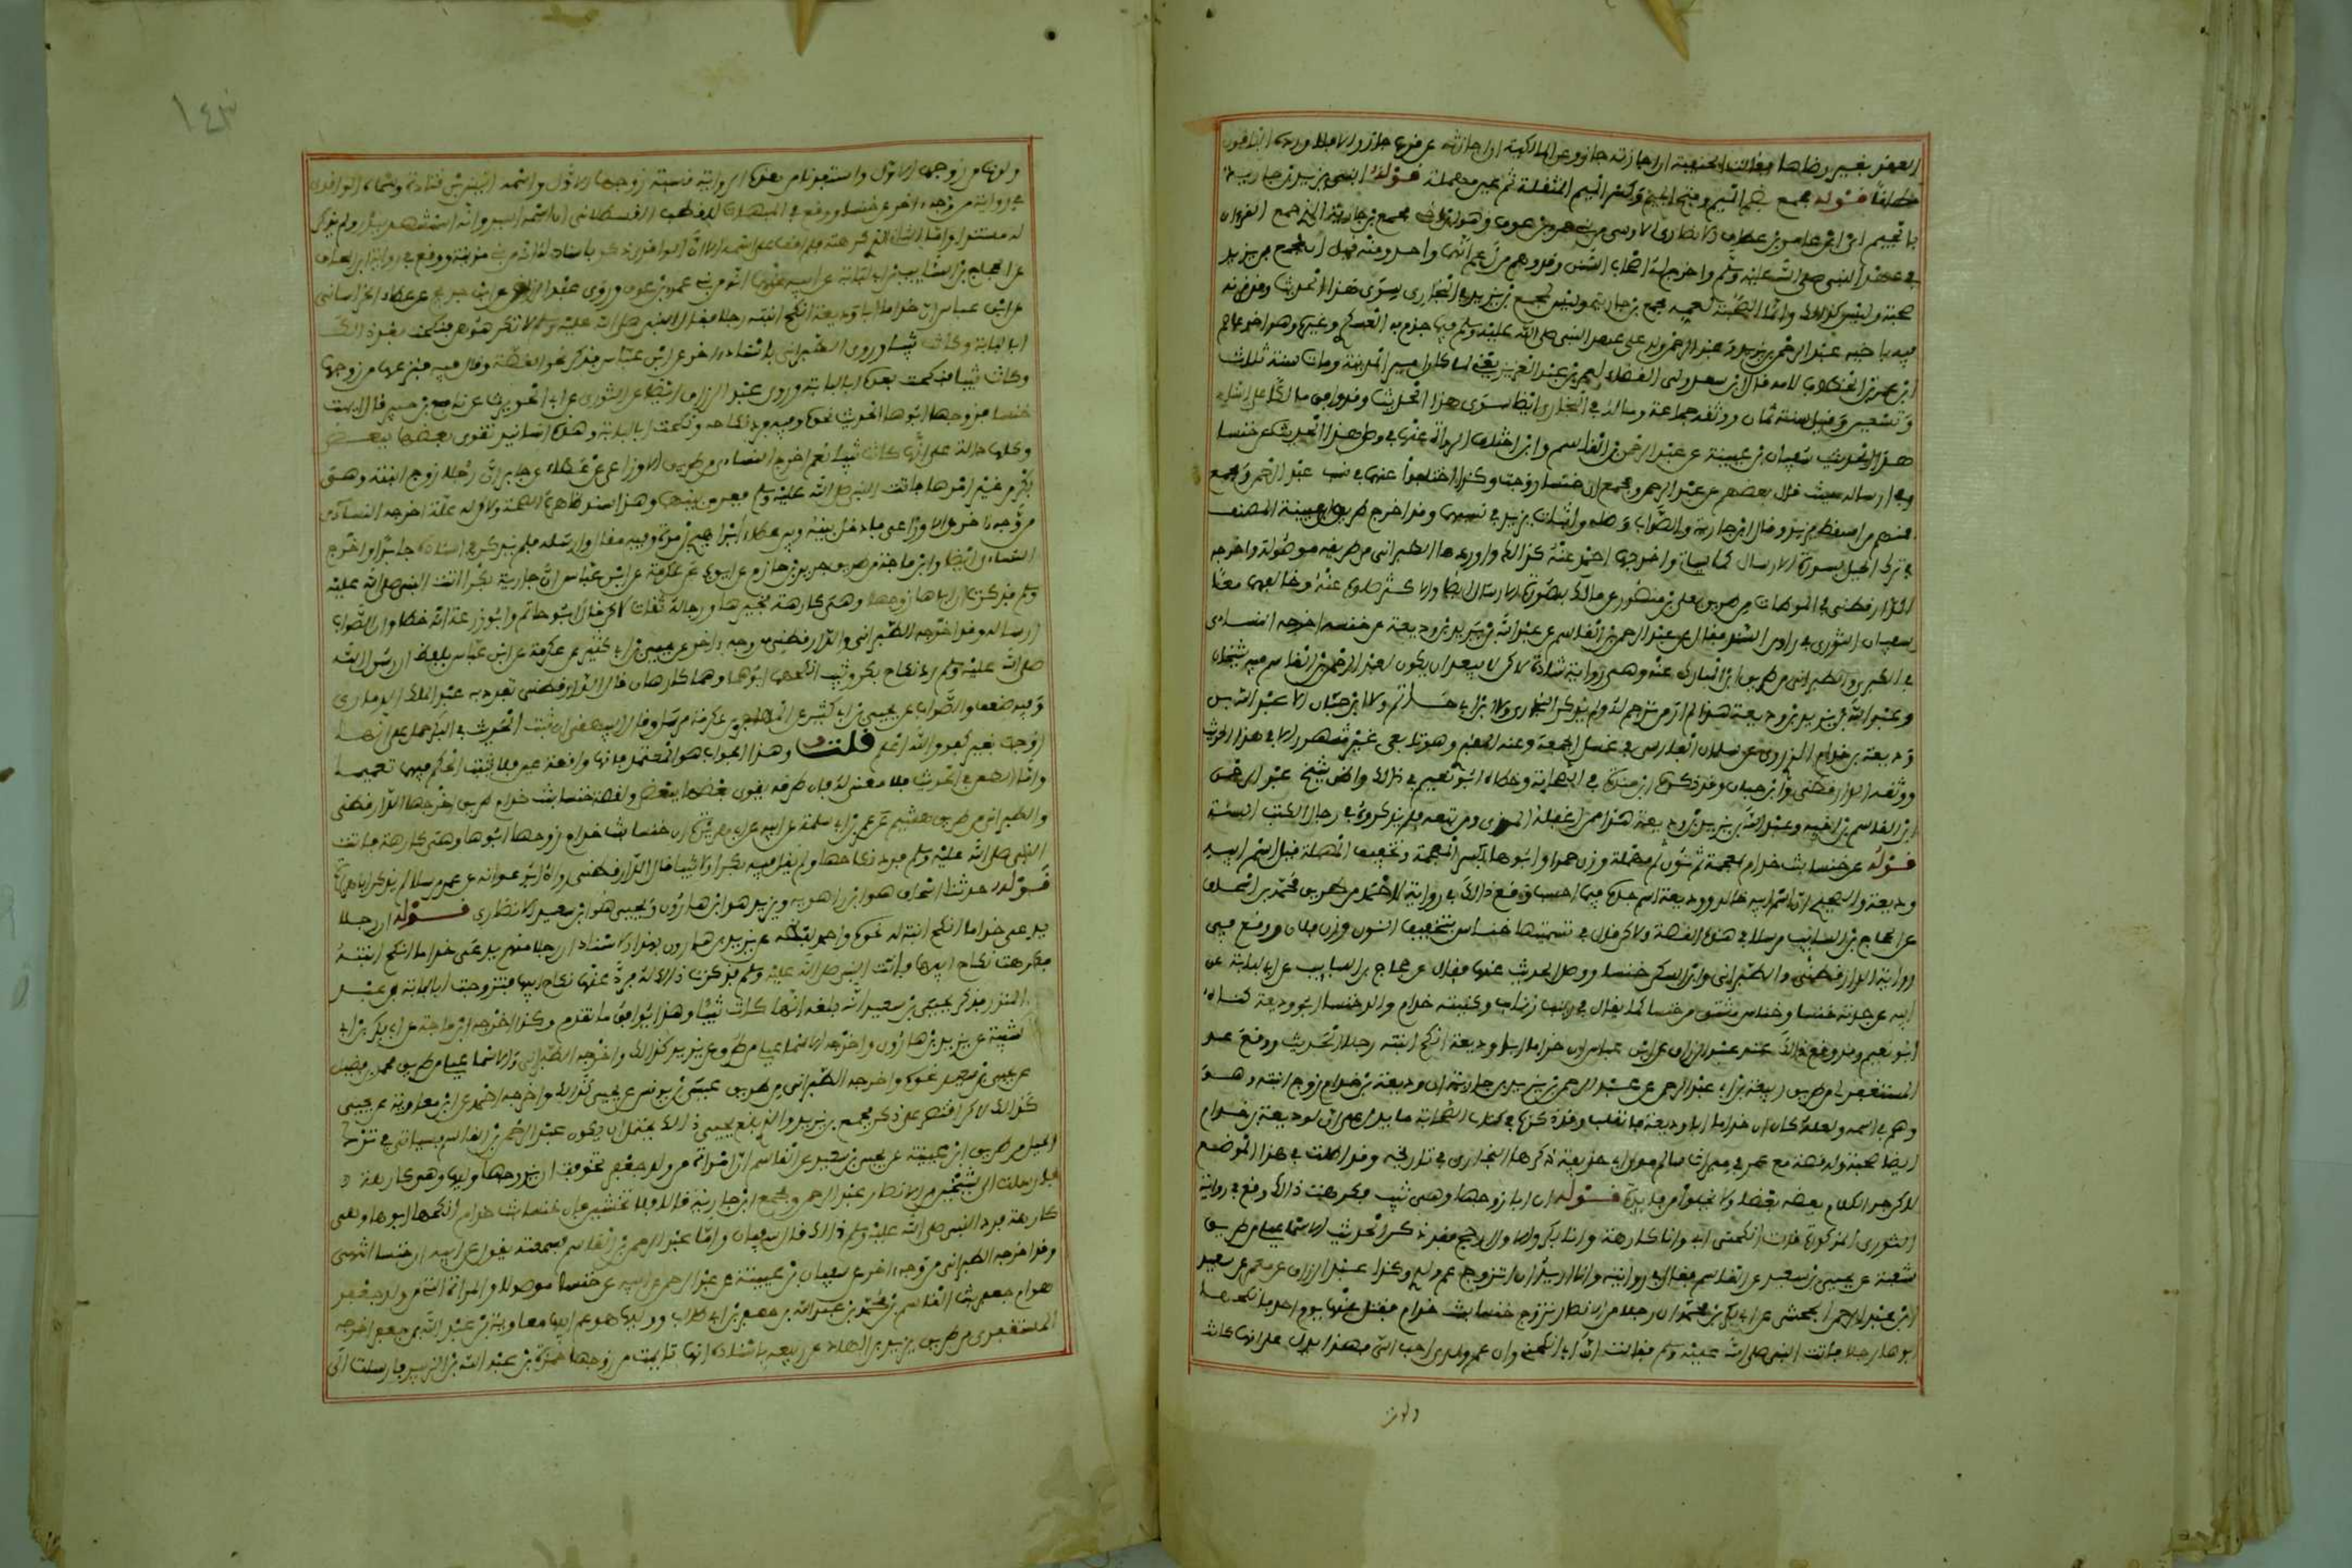 العقد بغير رضاها فقالت الحنفية ان اجازته جاز وعن المالكية ان اجازته عن قرب جاز والا فلا ورده الباقون
مطلقا قوله مجمع بضم الميم وفتح الجيم وكسر الميم المثقلة ثم عين مهملة قوله ابني يزيد بن جارية
بالجيم اي ابن عامر بن العطاف الانصاري الاوسي من بني عمرو بن عوف وهو ابن اخي مجمع بن جارية الذي جمع القران
في عهد النبي صلى الله عليه وسلم واخرج له اصحاب السنن وقد وهم من زعم انهما واحد ومنه قيل ان لمجمع بن يزيد
صحبة وليس كذلك وانما الصحبة لعمه مجمع بن جارية وليس لمجمع بن يزيد في البخاري سوى هذا الحديث وقد قرنه
فيه باخيه عبد الرحمن بن يزيد وعبد الرحمن ولد على عهد النبي صلى الله عليه وسلم فيما جزم به العسكري وغيره وهو اخو عاصم
ابن عمر بن الخطاب لامه قال ابن سعد ولي القضاء لعمر بن عبد العزيز يعني لما كان امير المدينة ومات سنة ثلاث
وتسعين وقيل سنة ثمان ووثقه جماعة وماله في البخاري ايضا سوى هذا الحديث وقد وافق مالكا على اسناد
هذا الحديث سفيان بن عيينة عن عبد الرحمن بن القاسم وان اختلف الرواة عنهما في وصل هذا الحديث عن خنسا
وفي ارساله حيث قال بعضهم عن عبد الرحمن ومجمع ان خنسا زوجت وكذا اختلفوا عنهما في نسب عبد الرحمن ومجمع
فمنهم من اسقط يزيد وقال ابن جارية والصواب وصله واثبات يزيد في نسبهما وقد اخرج طريق ابن عيينة المصنف
في ترك الحيل بصورة الارسال كما سيأتي واخرجها احمد عنه كذلك واوردها الطبراني من طريقه موصولة واخرجه
الدارقطني في الموطات من طريق معلى بن منصور عن مالك بصورة الارسال ايضا والاكثر وصلوه عنه وخالفهما معا
سفيان الثوري في راو من السند فقال عن عبد الرحمن بن القاسم عن عبد الله بن يزيد بن وديعة عن خنسا اخرجه النساءي
في الكبرى والطبراني من طريق ابن المبارك عنه وهي رواية شاذة لاكن لا يبعد ان يكون لعبد الرحمن بن القاسم فيه شيخان
وعبد الله بن يزيد بن وديعة هذا لم ار من ترجم له ولم يذكر البخاري ولا ابن ابي حاتم ولا ابن حبان الا عبد الله بن
وديعة بن خدام الذي روى عن سلمان الفارسي في غسل الجمعة وعنه المقبري وهو تابعي غير مشهور الا في هذا الحديث
ووثقه الدارقطني وابن حبان وقد ذكره ابن منده في الصحابة وخطاه ابو نعيم في ذلك واظن شيخ عبد الرحمن
ابن القاسم ابن اخيه وعبد الله بن يزيد بن وديعة هذا ممن اغفله المزي ومن تبعه فلم يذكروه في رجال الكتب الستة
قوله عن خنسا بنت خدام بمعجمة ثم نون ثم مهملة وزن حمرا وابوها بكسر المعجمة وتخفيف المهملة قيل اسم ابيه
وديعة والصحيح ان اسم ابيه خالد ووديعة اسم جده فيما احسب وقع ذلك في رواية لاحمد من طريق محمد بن اسحاق
عن الحجاج بن السايب مرسلا في هذه القصة ولاكن قال في تسميتها خناس بتخفيف النون وزن فلان ووقع في
رواية الدارقطني والطبراني وابن السكن خنسا ووصل الحديث عنها فقال عن حجاج بن السايب عن ابي لبابة عن
ابيه عن جدته خنسا وخناس مشتق من خنسا كما يقال في زينب زناب وكنيته خدام والد خنسا ابو وديعة كناه
ابو نعيم وقد وقع ذلك عند عبد الرزاق عن ابن عباس ان خداما ابا وديعة انكح ابنته رجلا الحديث ووقع عند
المستغفري من طريق ربيعة بن ابي عبد الرحمن عن عبد الرحمن بن يزيد بن جارية ان وديعة بن خدام زوج ابنته وهو
وهم في اسمه ولعله كان ان خداما ابا وديعة فانقلب وقد ذكرت في كتاب الصحابة ما يدل على ان لوديعة بن خدام
ايضا صحبة وله قصة مع عمر في ميراث سالم مولى ابي حذيفة ذكرها البخاري في تاريخه وقد اطلت في هذا الموضع
لاكن جر الكلام بعضه بعضا ولا يخلوا من فايدة قوله ان اباها زوجها وهي ثيب فكرهت ذلك وقع في رواية
الثوري المذكورة قالت انكحني ابي وانا كارهة وانا بكر والاول ارجح فقد ذكر الحديث الاسماعيلي من طريق
شعبة عن يحيى بن سعيد عن القاسم فقال في روايته وانا اريد ان اتزوج عم ولدي وكذا عبد الرزاق عن معمر عن سعيد
ابن عبد الرحمن الجحشي عن ابي بكر بن محمد ان رجلا من الانصار تزوج خنسا بنت خدام فقتل عنها يوم احد فانكحها
ابوها رجلا فاتت النبي صلى الله عليه وسلم فقالت ان ابي انكحني وان عم ولدي احب الي فهذا يدل على انها كانت
ولدت
١٤٣
ولدت من زوجها الاول واستفدنا من هذه الرواية نسبة زوجها الاول واسمه انيس بن قتادة وسماه الواقدي
في روايته من وجه اخر عن خنسا ووقع في المبهمات للقطب القسطلاني ان اسمه اسير وانه استشهد ببدر ولم يذكر
له مستندا واما الثاني الذي كرهته فلم اقف على اسمه الا ان الواقدي ذكر باسناد له انه من مزينة ووقع في رواية ابن اسحاق
عن الحجاج بن السايب بن ابي لبابة عن ابيه عنها انه من بني عمرو بن عوف وروى عبد الرزاق عن ابن جريج عن عطاء الخراساني
عن ابن عباس ان خداما ابا وديعة انكح ابنته رجلا فقال له النبي صلى الله عليه وسلم لا تكرهوهن فنكحت بعد ذلك
ابا لبابة وكانت ثيبا وروى الطبراني باسناد اخر عن ابن عباس فذكر نحو القصة وقال فيه فنزعها من زوجها
وكانت ثيبا فنكحت بعده ابا لبابة وروى عبد الرزاق ايضا عن الثوري عن ابي الحويرث عن نافع بن جبير قال تايمت
خنسا فزوجها ابوها الحديث نحوه وفيه فرد نكاحه ونكحت ابا لبابة وهذه اسانيد تقوى بعضها ببعض
وكلها دالة على انها كانت ثيبا نعم اخرج النساءي من طريق الاوزاعي عن عطاء عن جابر ان رجلا زوج ابنته وهي
بكر من غير امرها فاتت النبي صلى الله عليه وسلم ففرق بينهما وهذا سند ظاهره الصحة ولاكن له علة اخرجه النساءي
من وجه اخر عن الاوزاعي فادخل بينه وبين عطاء ابراهيم بن مرة وفيه مقال وارسله فلم يذكر في اسناده جابرا واخرج
النساءي ايضا وابن ماجه من طريق جرير بن حازم عن ايوب عن عكرمة عن ابن عباس ان جارية بكرا اتت النبي صلى الله عليه
وسلم فذكرت ان اباها زوجها وهي كارهة فخيرها ورجاله ثقات لاكن قال ابو حاتم وابو زرعة انه خطا وان الصواب
ارساله وقد اخرجه الطبراني والدارقطني من وجه اخر عن يحيى بن ابي كثير عن عكرمة عن ابن عباس بلفظ ان رسول الله
صلى الله عليه وسلم رد نكاح بكر وثيب انكحهما ابوهما وهما كارهتان قال الدارقطني تفرد به عبد الملك الذماري
وفيه ضعف والصواب عن يحيى بن ابي كثير عن المهاجر بن عكرمة مرسل وقال البيهقي ان ثبت الحديث في البكر حمل على انها
زوجت بغير كفو والله اعلم قلت وهذا الجواب هو المعتمد فانها واقعة عين فلا يثبت الحكم فيها تعميما
واما الطعن في الحديث فلا معنى له فان طرقه يقوى بعضها ببعض ولقصة خنسا بنت خدام طريق اخرجها الدارقطني
والطبراني من طريق هشيم عن عمر بن ابي سلمة عن ابيه عن ابي هريرة ان خنسا بنت خدام زوجها ابوها وهي كارهة فاتت
النبي صلى الله عليه وسلم فرد نكاحها ولم يقل فيه بكرا ولا ثيبا قال الدارقطني رواه ابو عوانة عن عمر مرسلا لم يذكر ابا هريرة
قوله حدثنا اسحاق هو ابن راهويه ويزيد هو ابن هارون ويحيى هو ابن سعيد الانصاري قوله ان رجلا
يدعى خداما انكح ابنة له نحوه واحمد عن يزيد بن هارون بهذا الاسناد ان رجلا منهم يدعى خداما انكح ابنته
فكرهت نكاح ابيها فاتت النبي صلى الله عليه وسلم فذكرت ذلك له فرد عنها نكاح ابيها فتزوجت ابا لبابة بن عبد
المنذر فذكر يحيى بن سعيد انه بلغه انها كانت ثيبا وهذا يوافق ما تقدم وكذا اخرجه ابن ماجة عن ابي بكر بن ابي
شيبة عن يزيد بن هارون واخرجه الاسماعيلي من طرق عن يزيد كذلك واخرجه الطبراني والاسماعيلي من طريق محمد بن فضيل
عن يحيى بن سعيد نحوه واخرجه الطبراني من طريق عيسى بن يونس عن يحيى كذلك واخرجه احمد عن ابي معاوية عن يحيى
كذلك لاكن اقتصر على ذكر مجمع بن يزيد والذي بلغ يحيى ذلك يحتمل ان يكون عبد الرحمن بن القاسم فسياتي في ترك
الحيل من طريق ابن عيينة عن يحيى بن سعيد عن القاسم ان امراة من ولد جعفر تخوفت ان يزوجها وليها وهي كارهة
فارسلت الى شيخين من الانصار عبد الرحمن ومجمع ابني جارية قالا فلا تخشين فان خنسا بنت خدام انكحها ابوها وهي
كارهة فرد النبي صلى الله عليه وسلم ذلك قال سفيان واما عبد الرحمن بن القاسم فسمعته يقول عن ابيه ان خنسا انتهى
وقد اخرجه الطبراني من وجه اخر عن سفيان بن عيينة عن عبد الرحمن عن ابيه عن خنسا موصولا والمراة التي من ولد جعفر
هي ام جعفر بنت القاسم بن محمد بن عبد الله بن جعفر بن ابي طالب ووليها هو عم ابيها معاوية بن عبد الله بن جعفر اخرجه
المستغفري من طريق يزيد بن الهاد عن ربيعة باسناده انها تايمت من زوجها حمزة بن عبد الله بن الزبير فارسلت الى